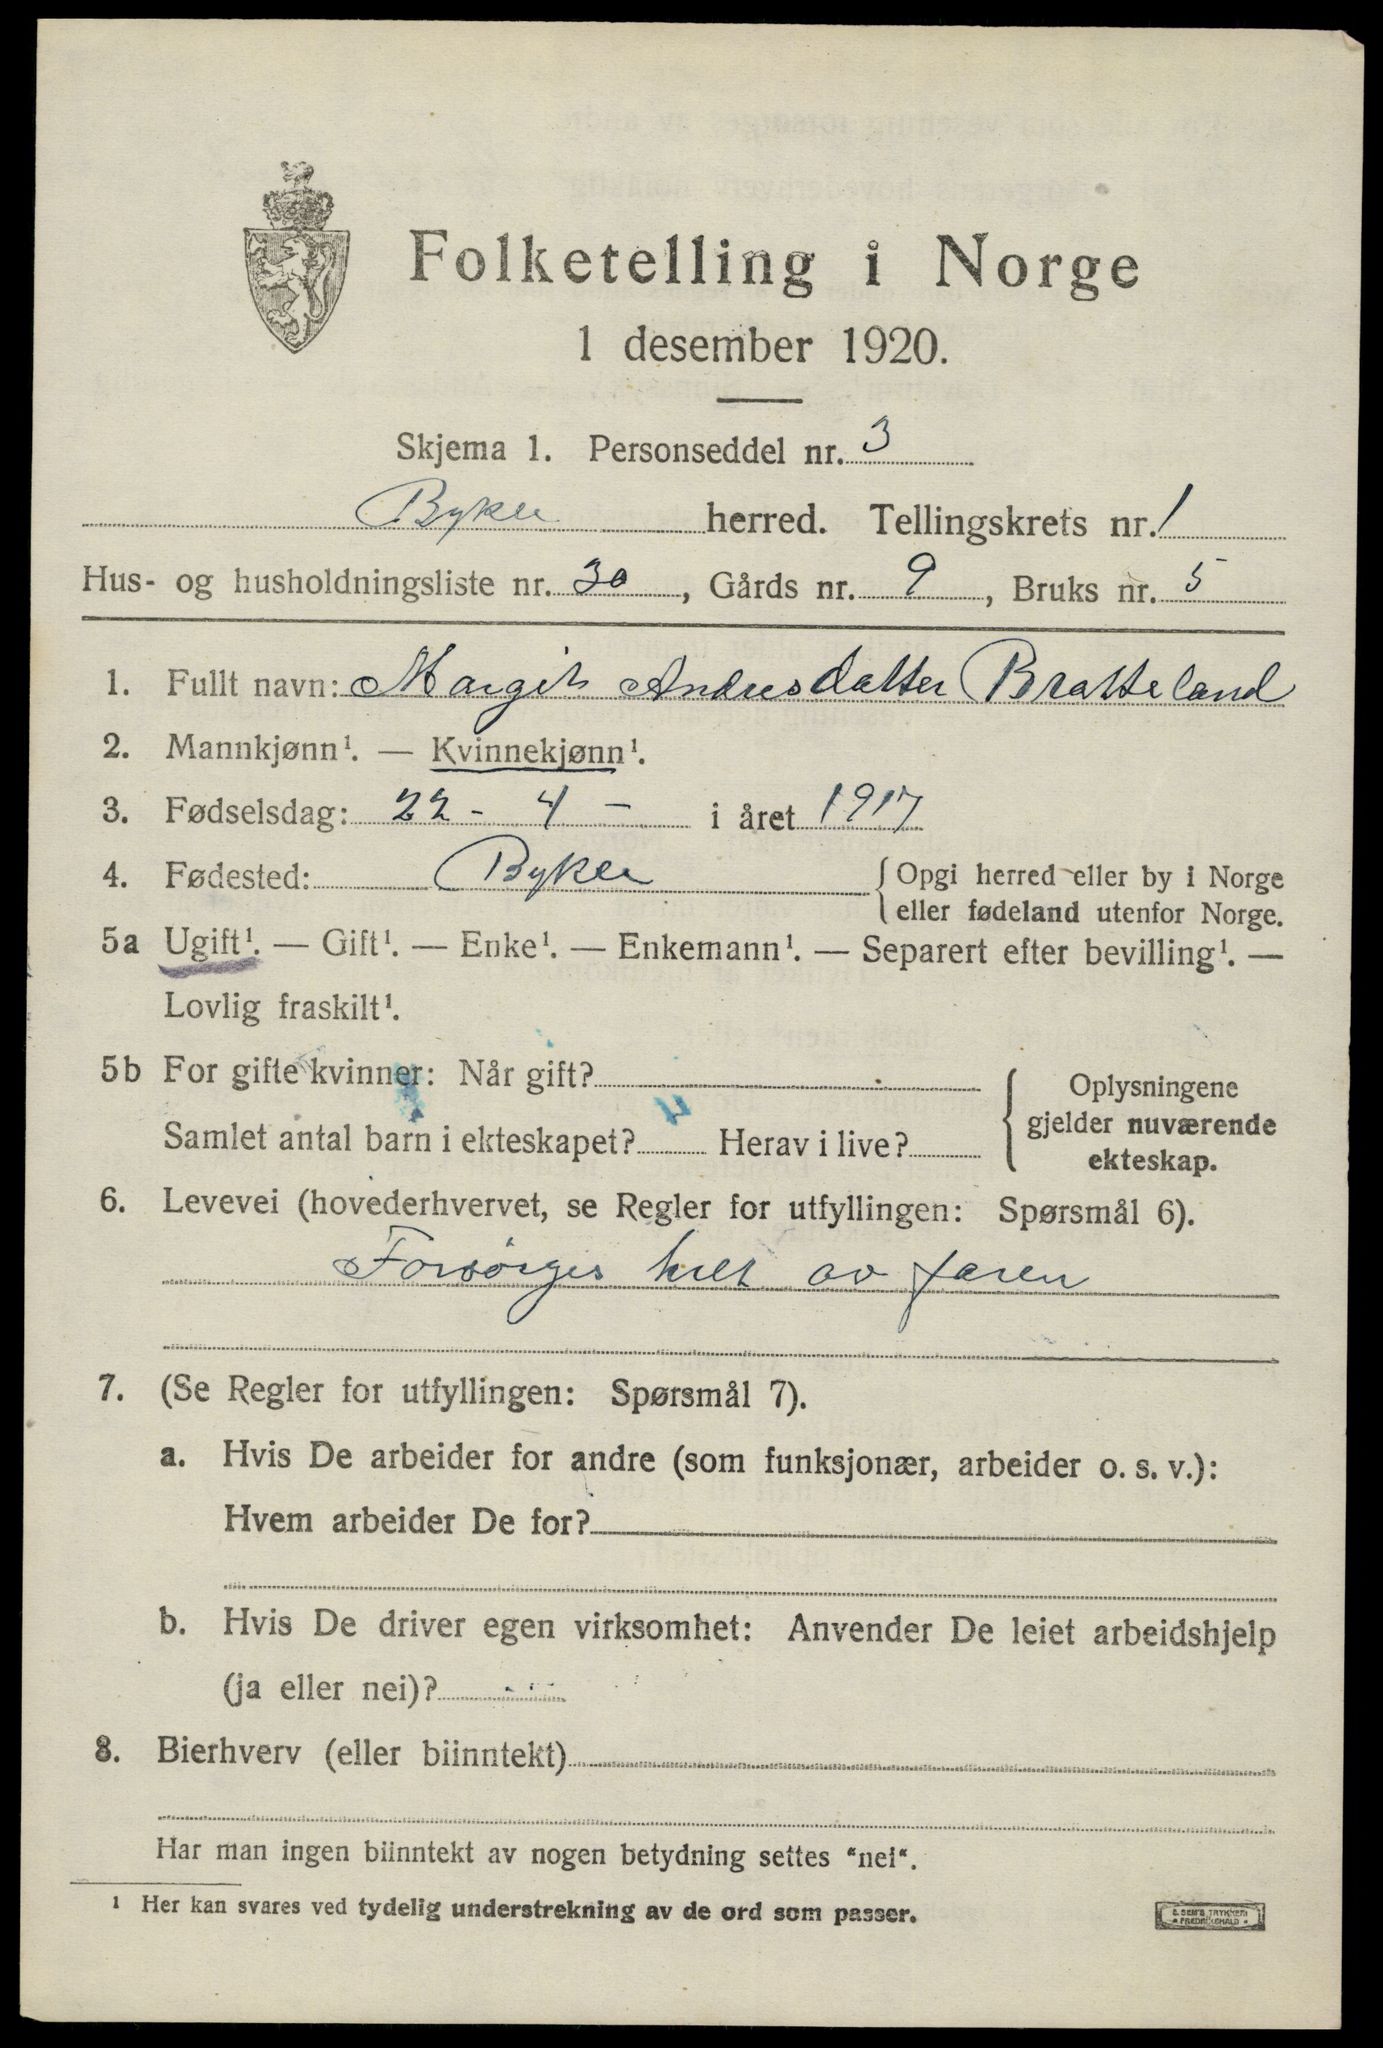 Folketelling i Norge
1 desember 1920.
Skjema 1. Personseddel nr. 3
Bykle herred. Tellingskrets nr. 1
Hus- og husholdningsliste nr. 30, Gårds nr. 9, Bruks nr. 5
1. Fullt navn: Margit Andresdatter Bratteland
2. Mannkjønn¹. — Kvinnekjønn¹.
3. Fødselsdag: 22 - 4 - i året 1917
4. Fødested: Bykle {Opgi herred eller by i Norge
eller fødeland utenfor Norge.
5a Ugift¹. — Gift¹. — Enke¹. — Enkemann¹. — Separert efter bevilling¹. —
Lovlig fraskilt¹.
5b For gifte kvinner: Når gift?
Samlet antal barn i ekteskapet? Herav i live?
{Oplysningene
gjelder nuværende
ekteskap.
4
6. Levevei (hovederhvervet, se Regler for utfyllingen: Spørsmål 6).
Forsörges helt av faren
7. (Se Regler for utfyllingen: Spørsmål 7).
a. Hvis De arbeider for andre (som funksjonær, arbeider o. s. v.):
Hvem arbeider De for?
b. Hvis De driver egen virksomhet: Anvender De leiet arbeidshjelp
(ja eller nei)?
8. Bierhverv (eller biinntekt)
Har man ingen biinntekt av nogen betydning settes "nei".
¹ Her kan svares ved tydelig understrekning av de ord som passer.
E. SEM'S TRYKKERI
FREDRIKSHALD